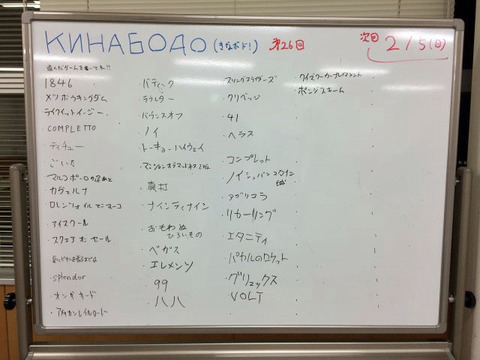 КИНАБОДО (きなボド!) 第26回
次回 2/5(日)
遊んだゲームを書いて下さい!!
1846
メソポウキングダム
テイクイットイージー
COMPLETTO
ティチュー
ごいた
マルコポーロの足あと
カヴェルナ
ロレンツォ イル マニフィーコ
アイスクール
スクェア オン セール
splendor
オンザ カード
アメリカンレイルロード
バティーク
テラルター
バウンスオフ
ノイ
トーキョーハイウェイ
マンションオブマッドネス2版
横打
ナインティナイン
おもわぬひろいもの
ベガス
エレメンツ
99
ハハ
スリングプラグザーズ
クリベッジ
41
ヘラス
コンプレット
ノイシュバンシュタイン城
アグリコラ
リカーリング
エタニティ
パカルのロケット
グリュックス
VOLT
ボンジスキーム